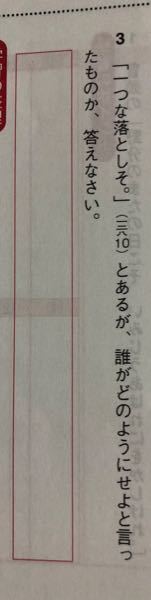 3 「一つな落としそ。」(三六10)とあるが、誰がどのようにせよと言っ
たものか、答えなさい。